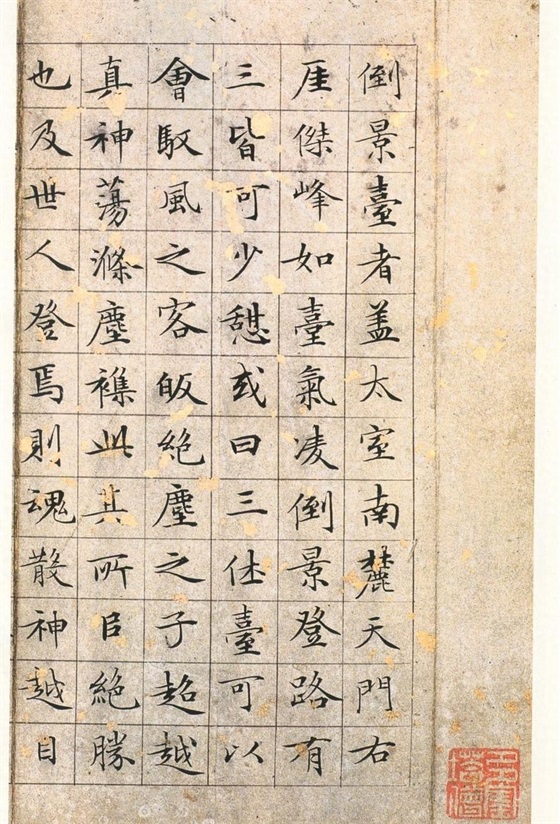 倒景臺者盖太室南麓天門右
厓傑峰如臺氣凌倒景登路有
三皆可少憇或曰三休臺可以
會馭風之客皈絶塵之子超越
真神蕩滌塵襍此其所㠯絶勝
也及世人登焉則魂散神越目